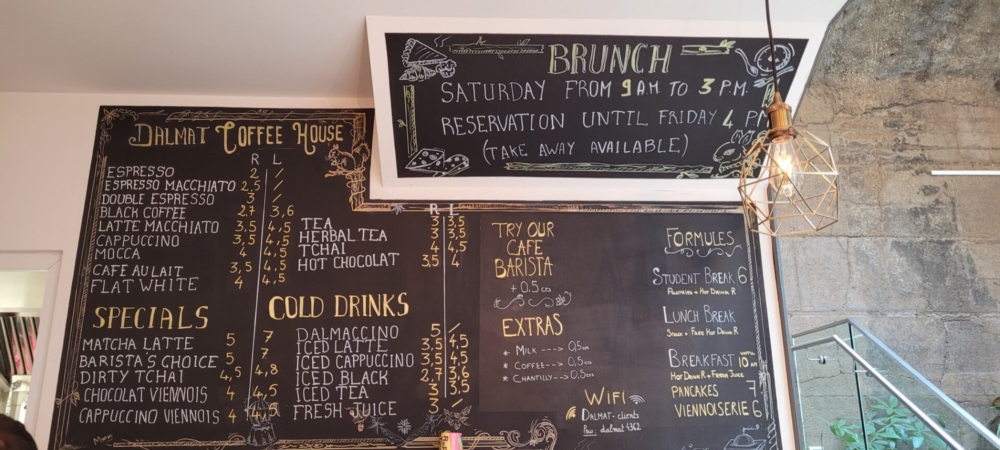 BRUNCH
SATURDAY FROM 9 AM TO 3 P.M.
RESERVATION UNTIL FRIDAY 4 P
(TAKE AWAY AVAILABLE)
DALMAT COFFEE HOUSE
R L
ESPRESSO 2 /
ESPRESSO MACCHIATO 2,5 /
DOUBLE ESPRESSO 3 /
BLACK COFFEE 2,7 3,6
LATTE MACCHIATO 3,5 4,5
CAPPUCCINO 3,5 4,5
MOCCA 4 4,5
CAFE AU LAIT 3,5 4,5
FLAT WHITE 4 4,5
SPECIALS
MATCHA LATTE 5 7
BARISTA'S CHOICE 5 7
DIRTY TCHAI 4,5 4,8
CHOCOLAT VIENNOIS 4 4,5
CAPPUCCINO VIENNOIS 4 4,5
R L
TEA 3 3,5
HERBAL TEA 3 3,5
TCHAI 4 4,5
HOT CHOCOLAT 3,5 4
COLD DRINKS
DALMACCINO 5 /
ICED LATTE 3,5 4,5
ICED CAPPUCCINO 3,5 4,5
ICED BLACK 2,7 3,6
ICED TEA 3,5
FRESH JUICE 3 /
TRY OUR
CAFE
BARISTA
+ 0.5
EXTRAS
* MILK ---> 0,5
* COFFEE---> 0,5
* CHANTILLY---> 0,5
WIFI
DALMAT-clients
dalmat 4362
FORMULES
STUDENT BREAK 6
+ HOT DRINK R
LUNCH BREAK
HOT DRINK R
BREAKFAST 10
HOT DRINK R + FRESH JUICE
PANCAKES 7
VIENNOISERIE 6